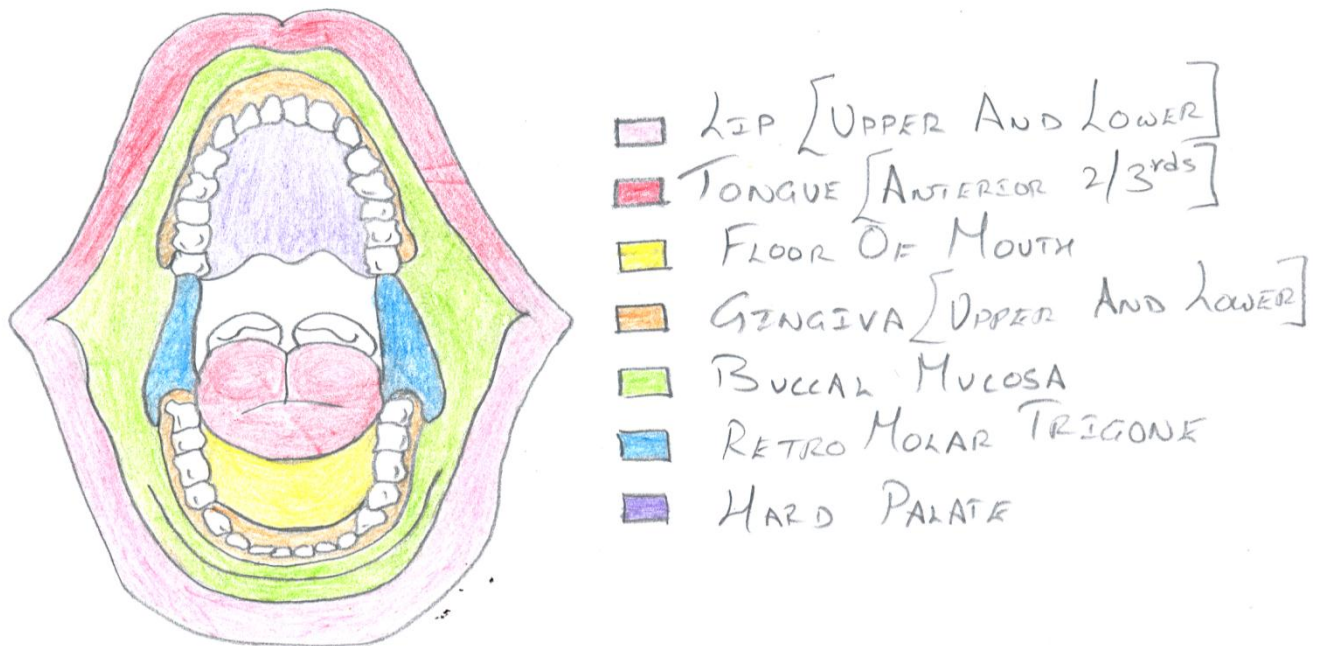 LIP [UPPER AND LOWER]
TONGUE [ANTERIOR 2/3rds]
FLOOR OF MOUTH
GINGIVA [UPPER AND LOWER]
BUCCAL MUCOSA
RETRO MOLAR TRIGONE
HARD PALATE